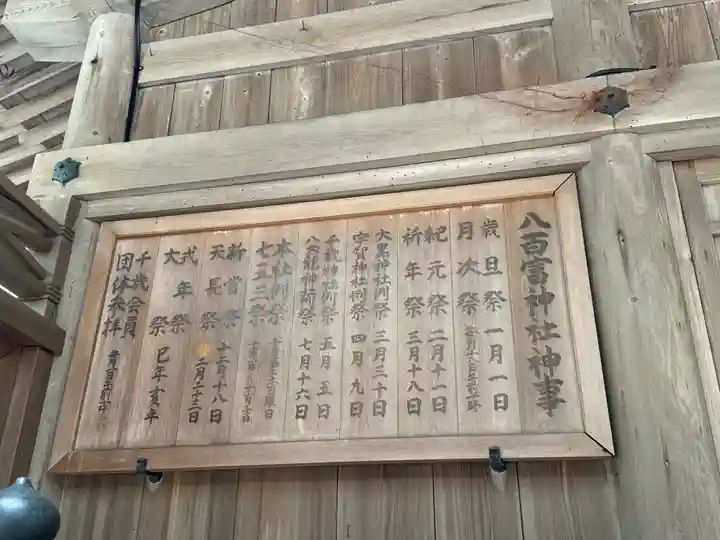 八百富神社神事
歳旦祭 一月一日
月次祭
紀元祭 二月十一日
祈年祭 三月十八日
大黒神社例祭 三月三十日
宇賀神社例祭 四月九日
千歳神社例祭 五月五日
八大龍神祈祭 七月十六日
本社例祭
七五三祭
新嘗祭 十二月十八日
天長祭 二月二十三日
式年祭
大祭 巳年亥年
千歳会員
団体参拝